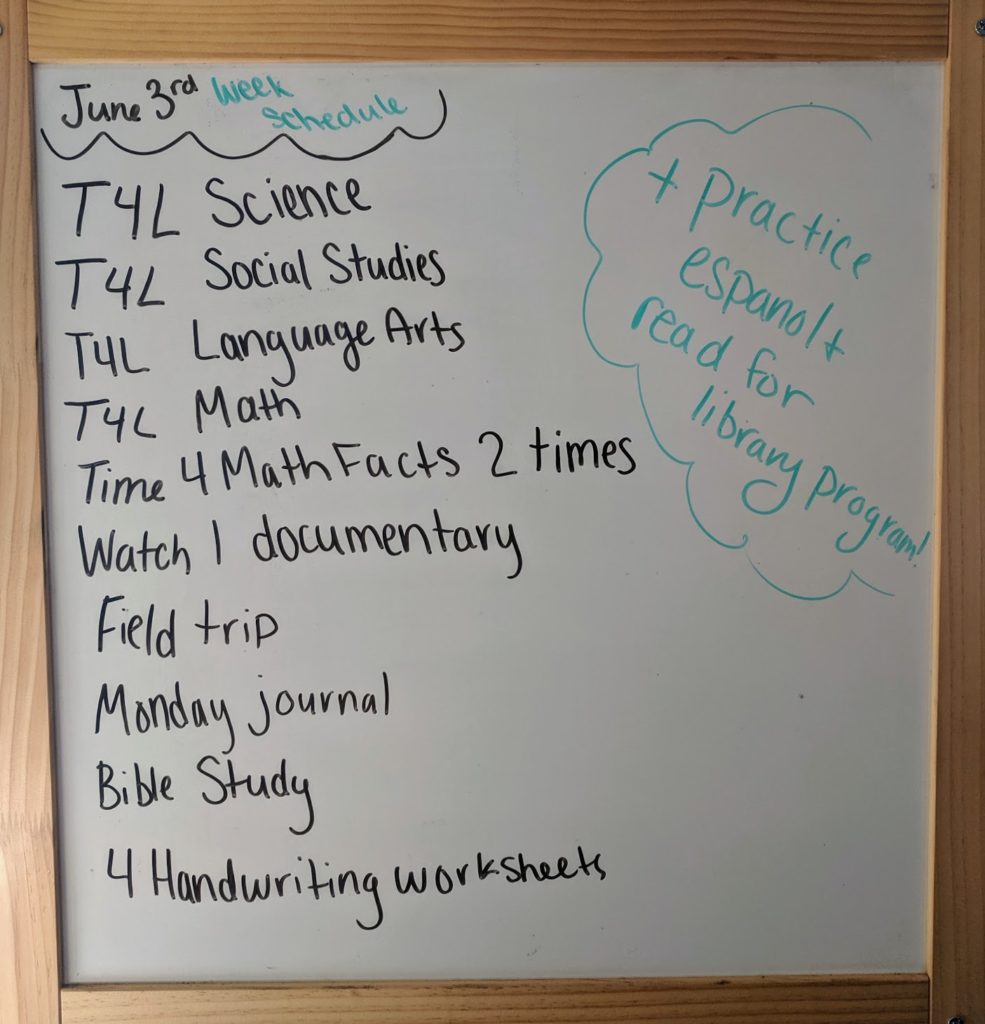 June 3rd Week
Schedule
T4L Science
T4L Social Studies
T4L Language Arts
T4L Math
Time 4 Math Facts 2 times
Watch 1 documentary
Field trip
Monday journal
Bible Study
4 Handwriting worksheets
+ Practice
espanol +
read for
library program!